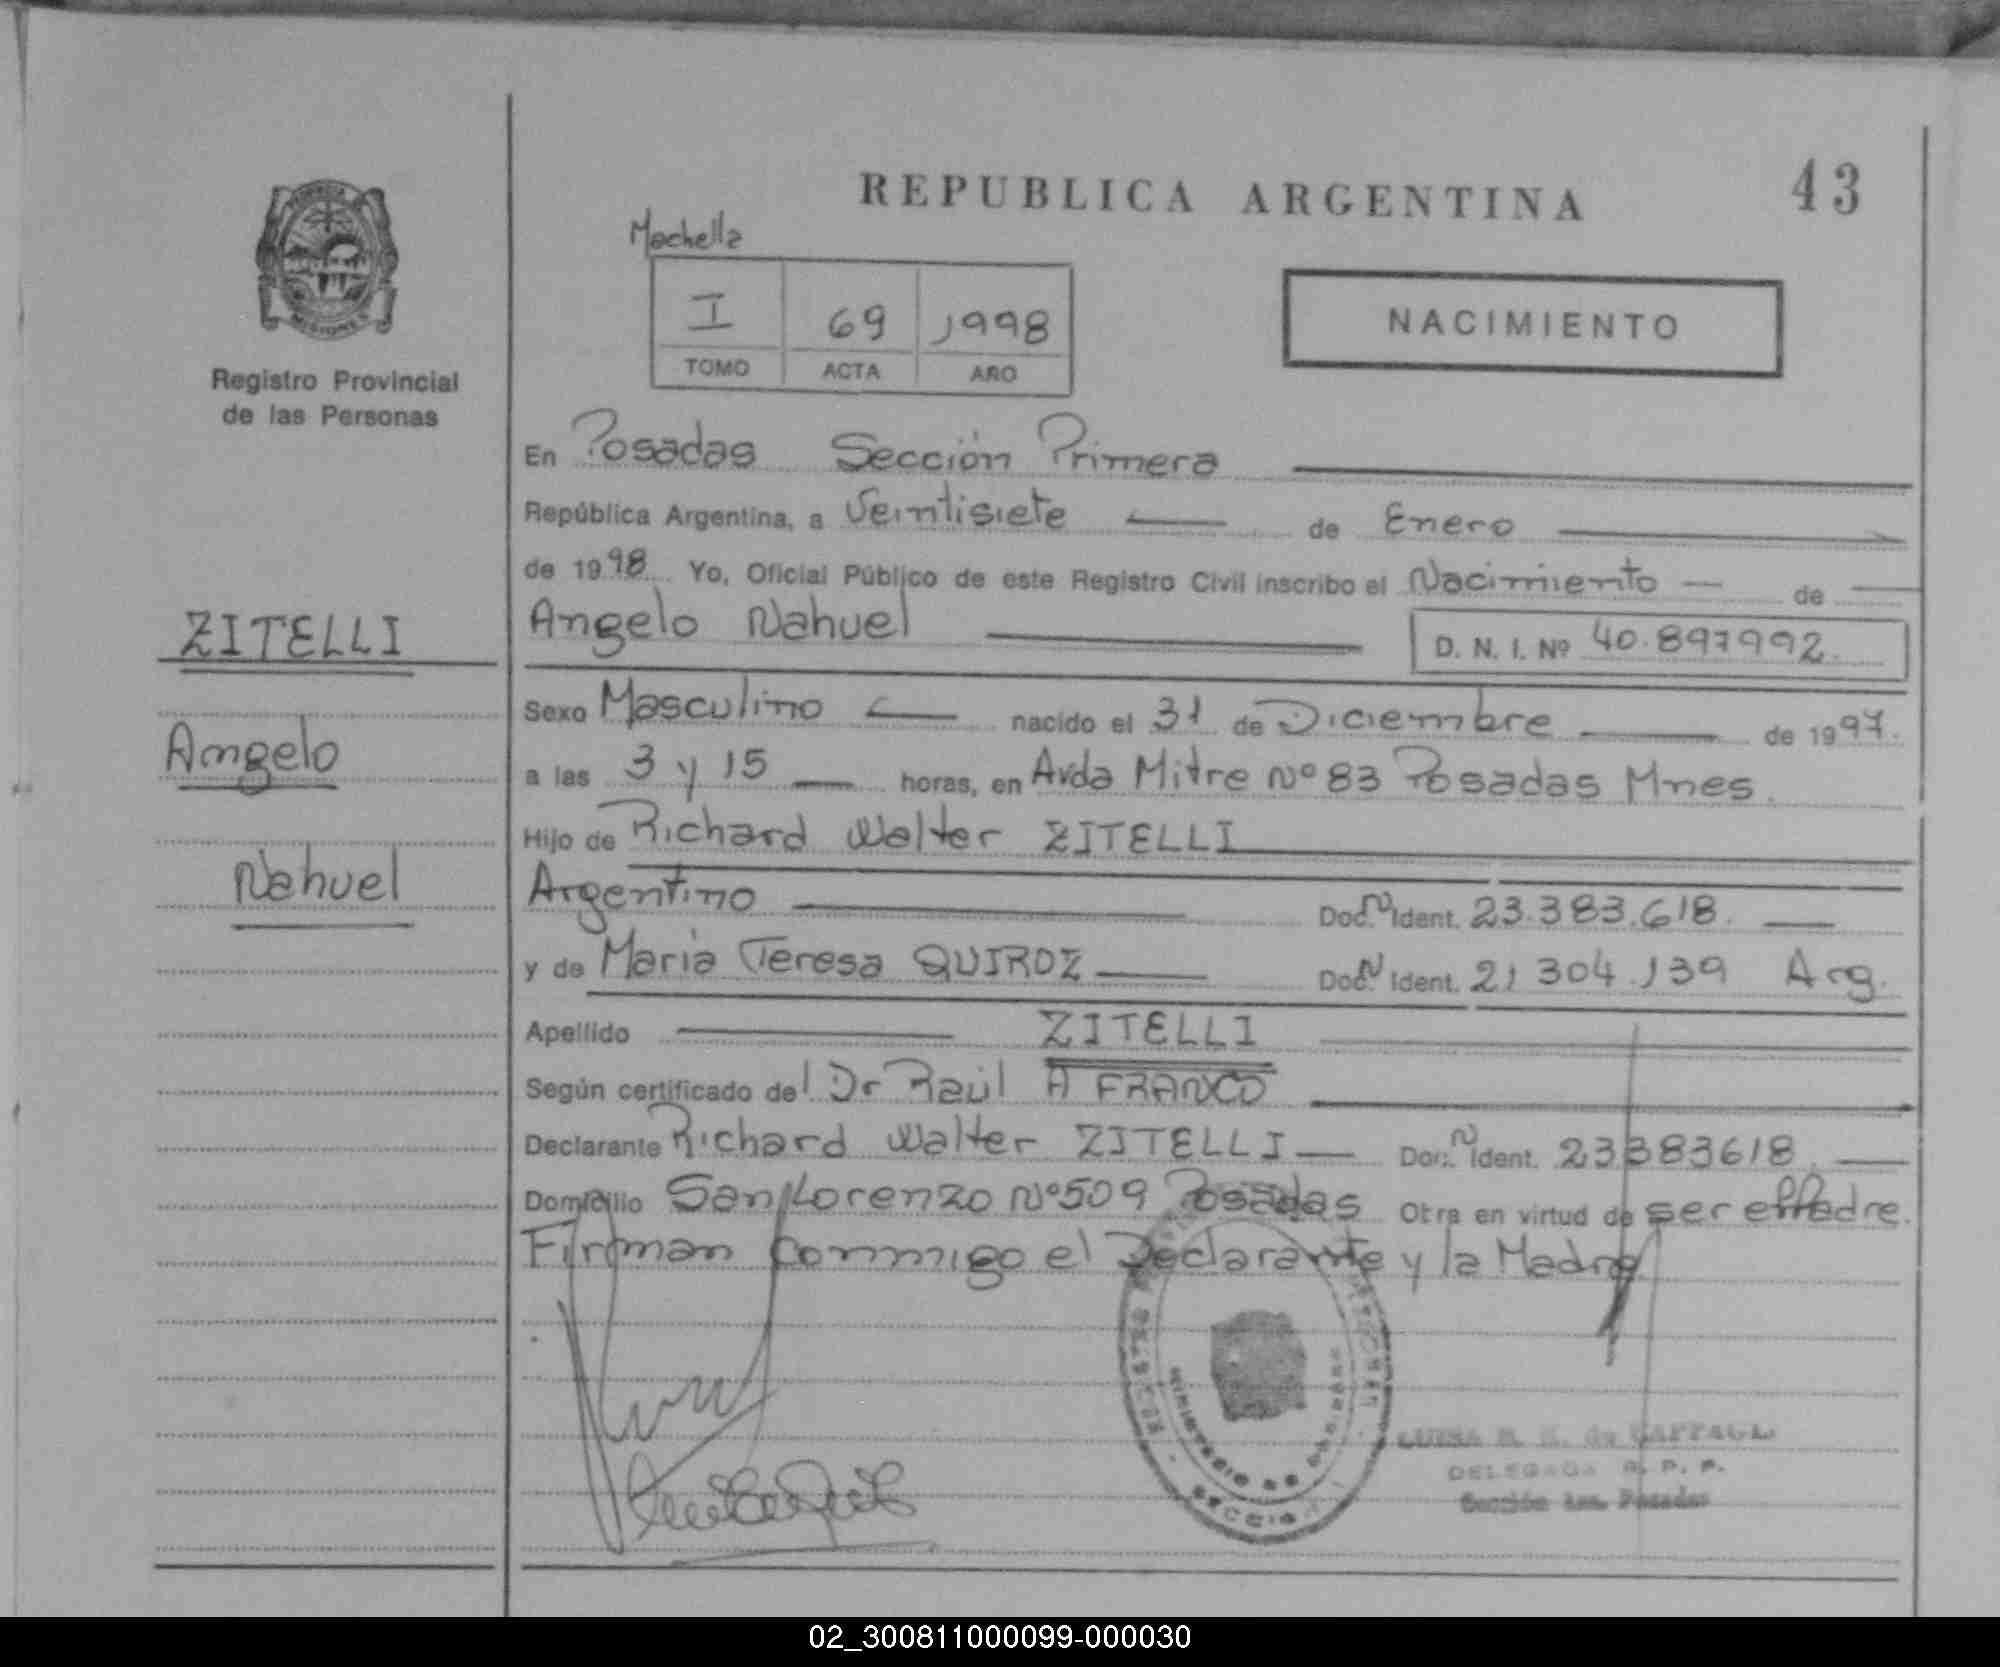 REPUBLICA ARGENTINA
43
MISIONES
Registro Provincial
de las Personas
Mochella
I 69 1998
TOMO ACTA AÑO
NACIMIENTO
En Posadas Sección Primera
República Argentina, a Veintisiete de Enero
de 1998 Yo, Oficial Público de este Registro Civil inscribo el Nacimiento de
ZITELLI
Angelo Nahuel
D. N. I. Nº 40.897992.
Sexo Masculino nacido el 31 de Diciembre de 1997.
Angelo
a las 3 y 15 horas, en Avda Mitre Nº 83 Posadas Mnes.
Hijo de Richard Walter ZITELLI
Nahuel
Argentino Doc. N Ident. 23.383.618.
y de Maria Teresa QUIROZ Doc. N Ident. 21 304.139 Arg.
Apellido ZITELLI
Según certificado del Dr Raúl A FRANCO
Declarante Richard Walter ZITELLI Doc. N Ident. 23383618.
Domicilio San Lorenzo Nº 509 Posadas Otra en virtud de ser el Padre.
Firman conmigo el Declarante y la Madre
DELEGADA R. P. P.
Sección 1ra. Posadas
02_300811000099-000030